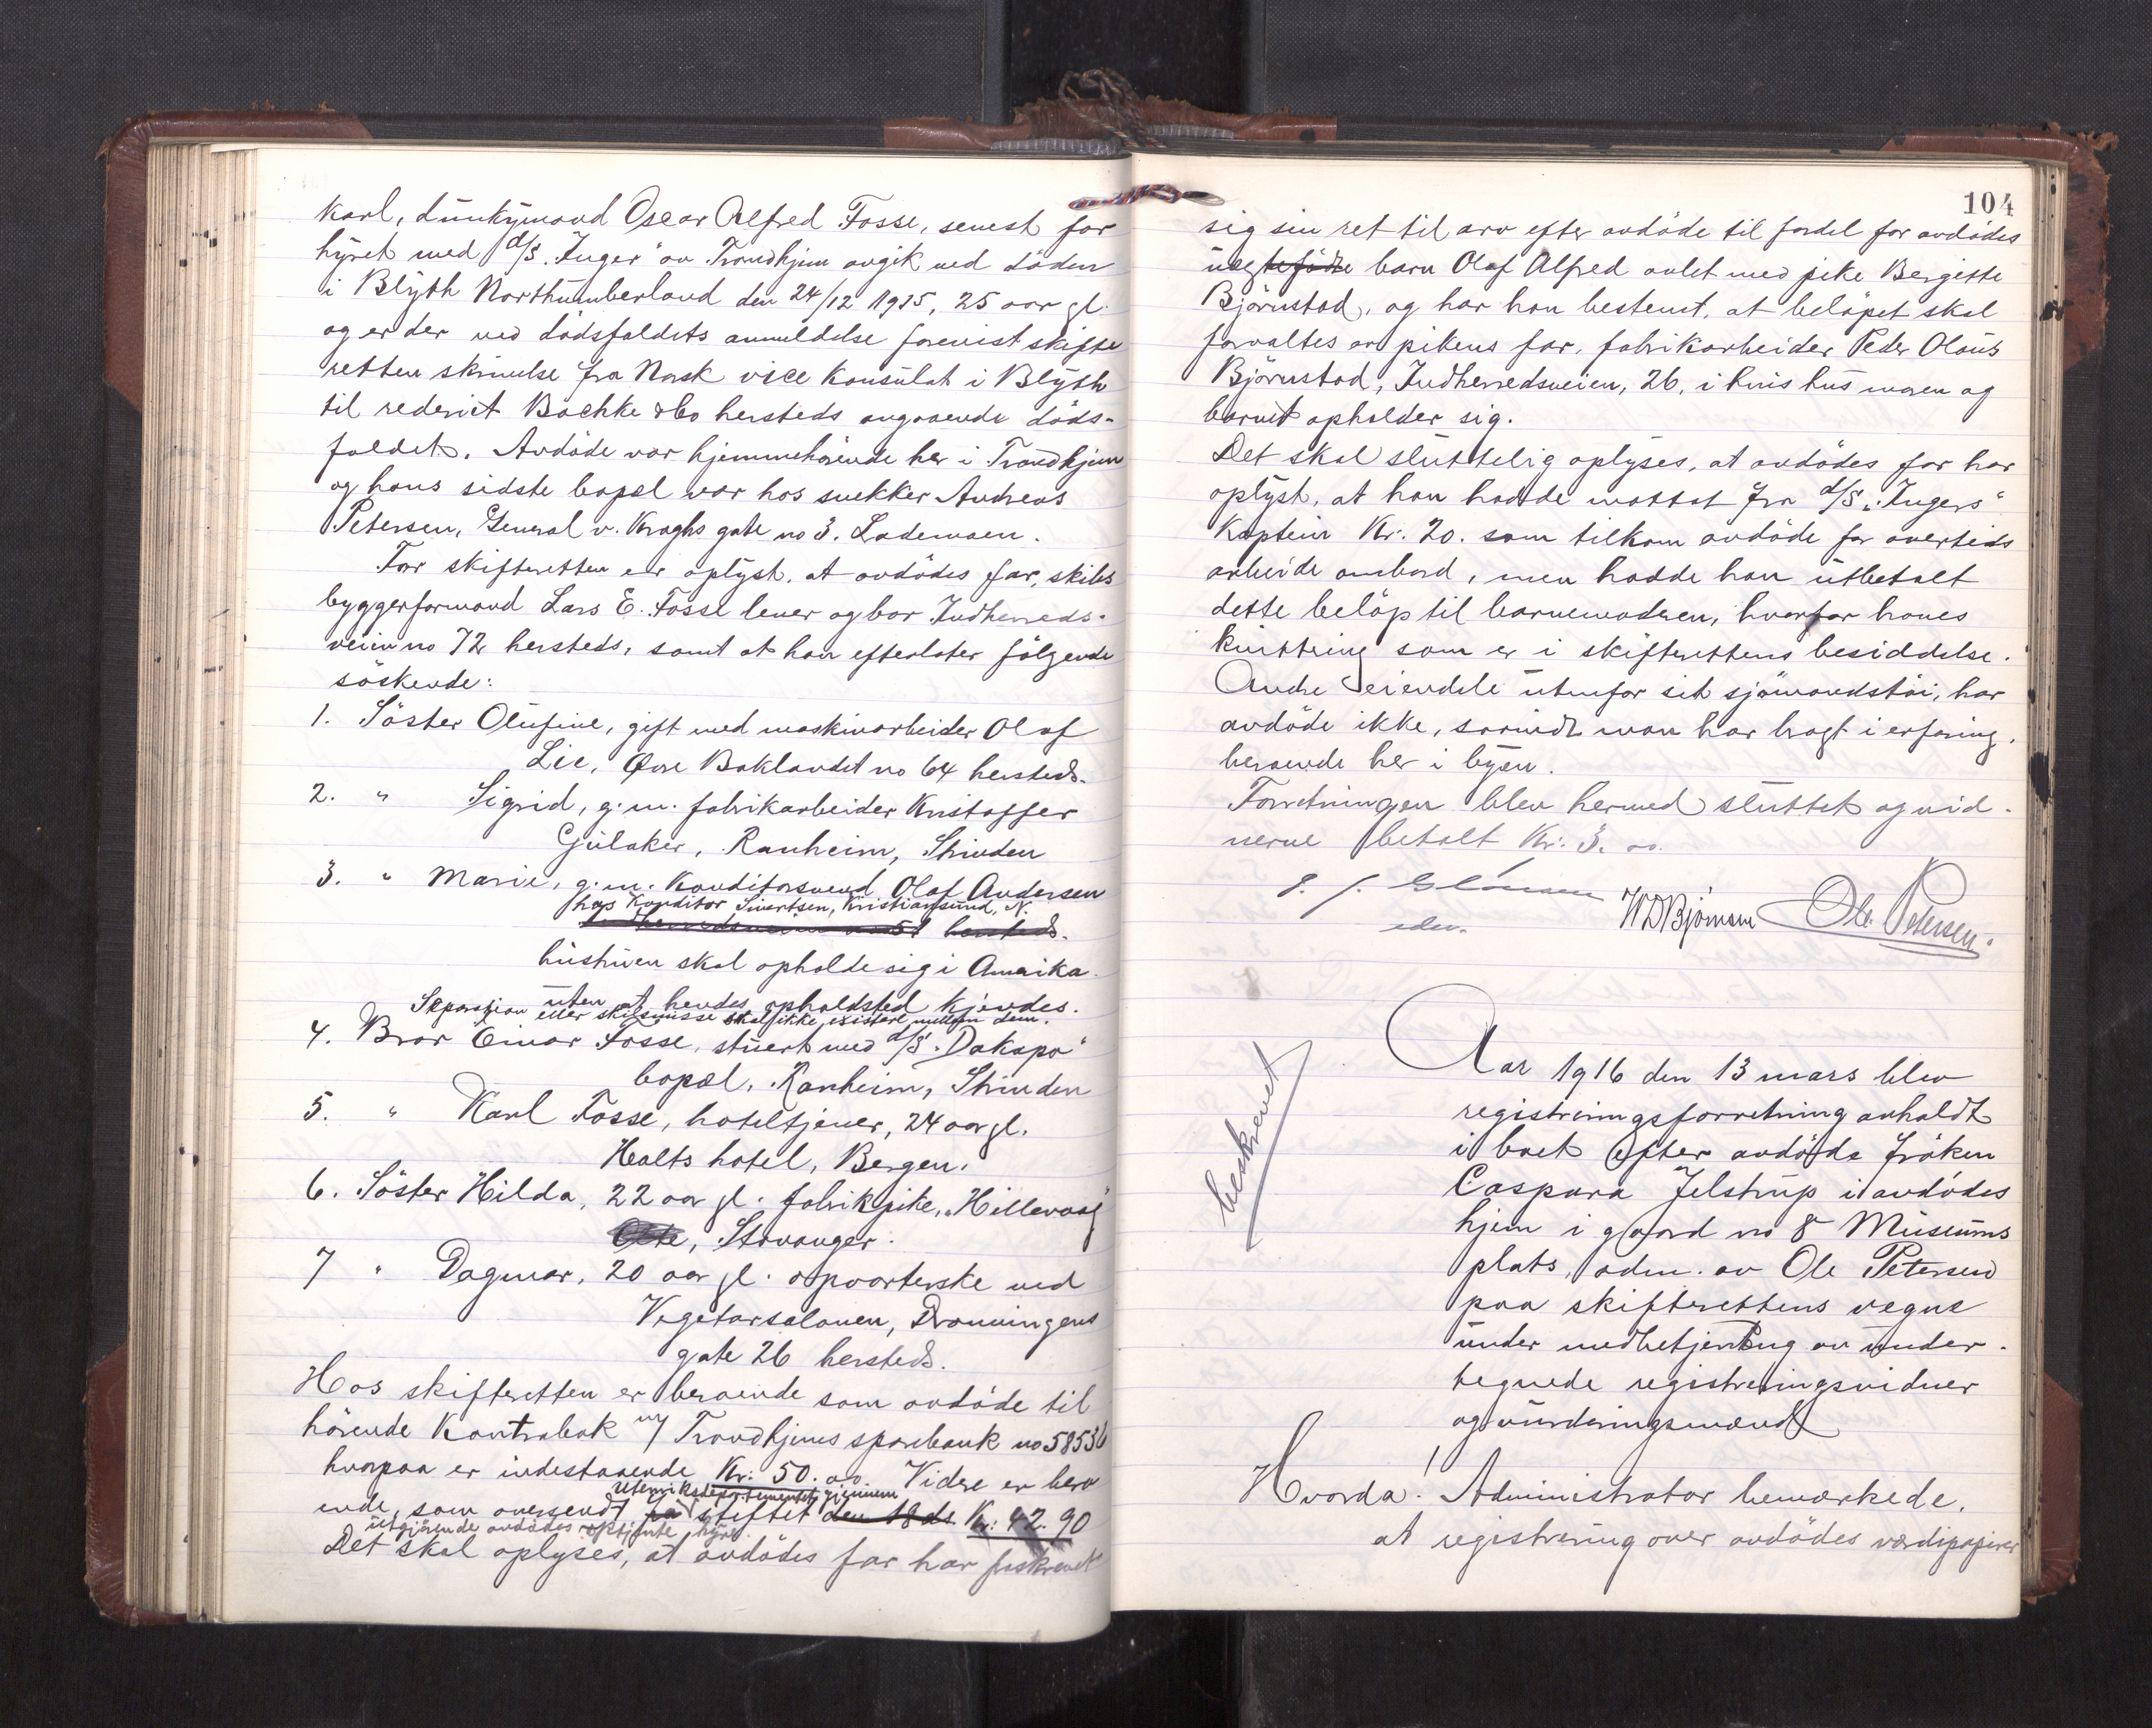 karl, dunkymand Oscar Alfred Fosse, senest for
hyret med d/s. "Inger" av Trondhjem avgik ved döden
i Blyth Northumberland den 24/12 1915, 25 aar gl.
og er der ved dödsfaldets anmeldelse forevist skifte
retten skrivelse fra Norsk vice konsulat i Blyth
til rederiet Bachke & Co hersteds angaaende döds-
faldet. Avdöde var hjemmehörende her i Trondhjem
og hans sidste bopæl var hos snekker Andreas
Petersen, General v. Kroghs gate no 3. Lademoen.
For skifteretten er oplyst, at avdödes far, skibs
byggerformand Lars E. Fosse lever og bor Indherreds-
veien no 72 hersteds, samt at han efterlater fölgende
söskende:
1. Söster Olufine, gift med maskinarbeider Olaf
Lie, Øvre Baklandet no 64 hersteds.
2. " Sigrid, g. m. fabrikarbeider Kristoffer
Gulaker, Ranheim, Strinden
3. " Marie, g. m. Konditorsvend Olaf Andersen
hos Konditor Sivertsen, Kristiansund, N.
hersteds.
hustruen skal opholde sig i Amerika.
uten at hendes opholdsted kjendes.
Separasjon eller skilsmisse skal ikke existere mellem dem.
4. Bror Einar Fosse, stuert med d/s. "Dakapo"
bopæl, Ranheim, Strinden
5. " Karl Fosse, hoteltjener, 24 aar gl.
Holts hotel, Bergen.
6. Söster Hilda, 22 aar gl. fabrikpike, "Hillevaag"
Stavanger.
7 " Dagmar, 20 aar gl. opvarterske ved
Vegetarsalonen, Dronningens
gate 26 hersteds.
Hos skifteretten er beroende som avdöde til
hörende Kontrabok m/ Trondhjems sparebank no 58536
hvorpaa er indestaaende Kr: 50.00. Videre er bero
Utenriksdepartementet gjennem
ende, som oversendt fra stiftet den 18 ds. Kr: 42.90
utgjörende avdödes optjente hyre.
Det skal oplyses, at avdödes far har fraskrevet
104
sig sin ret til arv efter avdöde til fordel for avdödes
uegtefödte barn Olaf Alfred avlet med pike Bergitte
Björnstad, og har han bestemt, at belöpet skal
forvaltes av pikens far, fabrikarbeider Peder Olaus
Björnstad, Indherredsveien, 26, i hvis hus moren og
barnet opholder sig.
Det skal sluttelig oplyses, at avdödes far har
oplyst, at han hadde mottat fra d/s. "Ingers"
Kaptein Kr: 20. som tilkom avdöde for overtids
arbeide ombord, men hadde han utbetalt
dette belöp til barnemodren, hvorfor haves
kvittering som er i skifterettens besiddelse.
Andre eiendele utenfor sit sjömandstöi, har
avdöde ikke, saavidt man har bragt i erfaring,
beroende her i byen.
Forretningen blev hermed sluttet og vid-
nerne betalt Kr: 3.00.
W D Björnson Ole Petersen.
edv.
beskrevet
Aar 1916 den 13 mars blev
registreringsforretning avholdt
i boet efter avdöde fröken
Caspara Jelstrup i avdödes
hjem i gaard no 8 Museums
plats, adm. av Ole Petersen
paa skifterettens vegne
under medbetjening av under-
tegnede registreringsvidner
og vurderingsmænd
Hvorda! Administrator bemærkede,
at registrering over avdödes værdipapirer